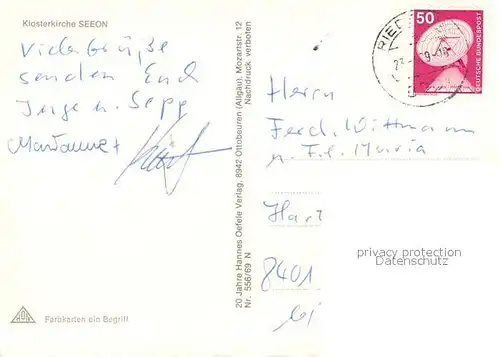 Klosterkirche SEEON
Viele Grüße
senden Euch
Inge u. Sepp
Marianne +
Farbkarten ein Begriff
20 Jahre Hannes Oefele Verlag, 8942 Ottobeuren (Allgäu), Mozartstr. 12
Nr. 556/69 N Nachdruck verboten
50
DEUTSCHE BUNDESPOST
RIED
Herrn
Ferd. Wittmann
u. Frl. Maria
Hart
8401
privacy protection
Datenschutz